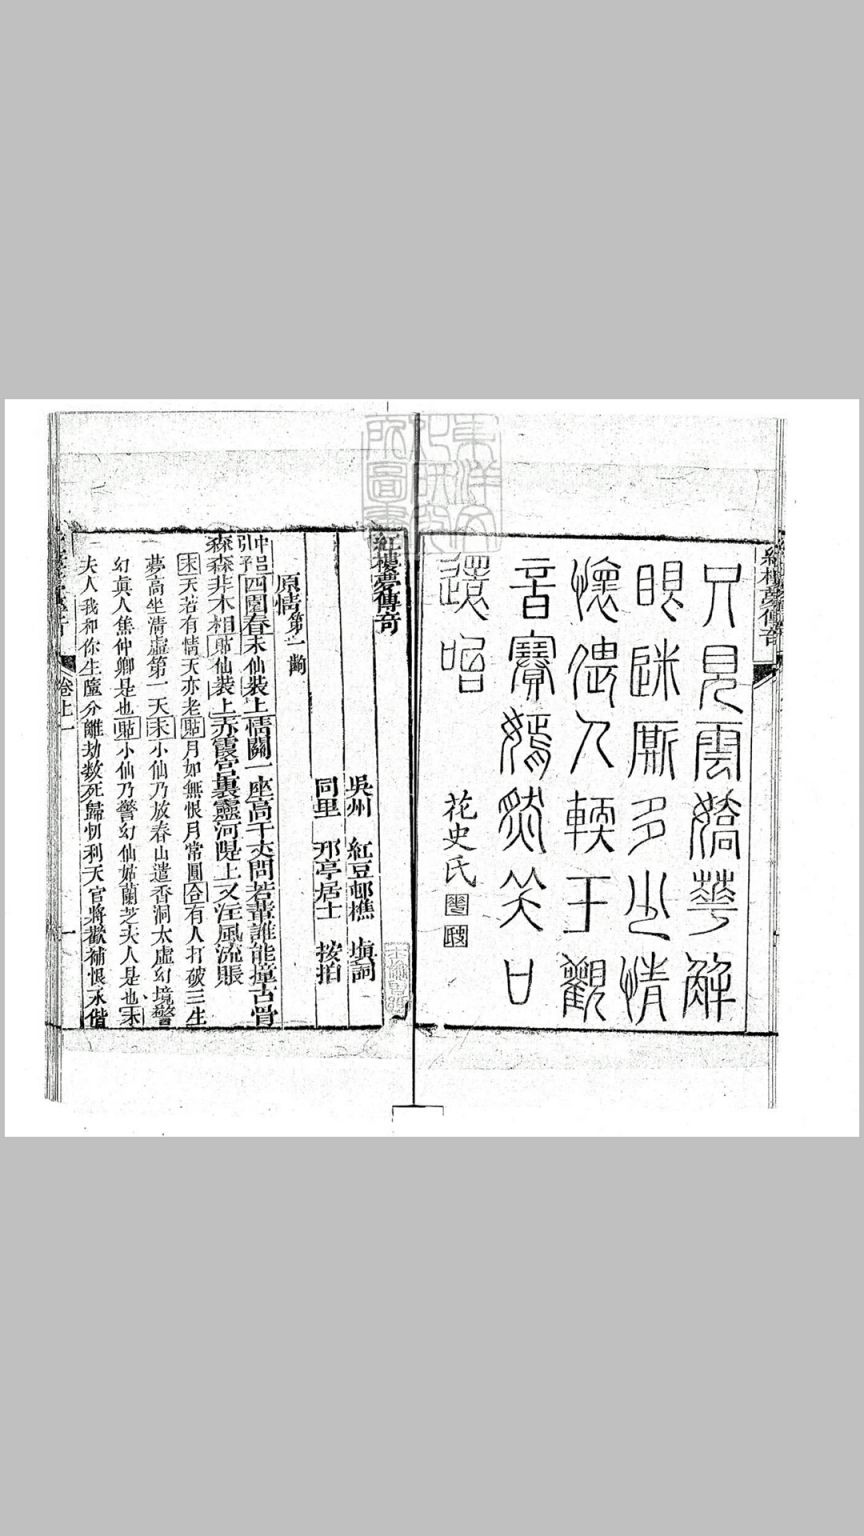 紅樓夢傳奇
只見雲嬌華解
眼迷廝多少情
懷偎人輭于觀
音賽嫣然笑口
還
花史氏
紅樓夢傳奇
吳州 紅豆邨樵 塡詞
同里 邗亭居士 按拍
原情第一齣
仲呂引子四園春末仙裝上情關一座高于天問若輩誰能撞古骨
森森非木相貼仙裝上赤霞宮裏靈河隄上又注風流賬
末天若有情天亦老貼月如無恨月常圓合有人打破三生
夢高坐清虛第一天末小仙乃放春山遣香洞太虛幻境警
幻眞人焦仲卿是也貼小仙乃警幻仙姑蘭芝夫人是也末
夫人我和你生塵分離劫數死歸忉利天官將歡補恨永偕
卷上 一